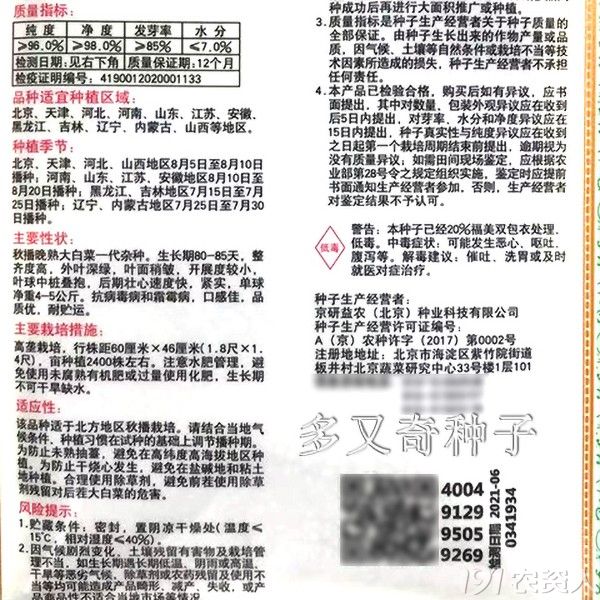 质量指标:
纯度 净度 发芽率 水分
≥96.0% ≥98.0% ≥85% ≤7.0%
检测日期:见右下角 质量保证期:12个月
检疫证明编号:4190012020001133
品种适宜种植区域:
北京、天津、河北、河南、山东、江苏、安徽、
黑龙江、吉林、辽宁、内蒙古、山西等地区。
种植季节:
北京、天津、河北、山西地区8月5日至8月10日
播种;河南、山东、江苏、安徽地区8月10日至
8月20日播种;黑龙江、吉林地区7月15日至7月
25日播种;辽宁、内蒙古地区7月25日至7月30
日播种。
主要性状:
秋播晚熟大白菜一代杂种。生长期80-85天,整
齐度高,外叶深绿,叶面稍皱,开展度较小,
叶球中桩叠抱,后期壮心速度快,紧实,单球
净重4-5公斤。抗病毒病和霜霉病,口感佳,品
质优,耐贮运。
主要栽培措施:
高垄栽培,行株距60厘米×46厘米(1.8尺×1.
4尺),亩种植2400株左右。注意水肥管理,避
免使用未腐熟有机肥或过量使用化肥,生长期
不可干旱缺水。
适应性:
该品种适于北方地区秋播栽培。请结合当地气
候条件、种植习惯在试种的基础上调节播种期。
为防止未熟抽薹,避免在高纬度高海拔地区种
植。为防止干烧心发生,避免在盐碱地和粘土
地种植。合理使用除草剂,避免前茬使用除草
剂残留对后茬大白菜的危害。
风险提示:
1.贮藏条件:密封,置阴凉干燥处(温度≤
15℃,相对湿度≤40%)。
2.因气候剧烈变化,土壤残留有害物及栽培管
理不当,如生长期遇长期低温、阴雨或高温、
干旱等恶劣气候,除草剂或农药残留及使用不
当等均可能造成产品畸形、减产、失收,或产
品商品性不适合当地市场等情况。
种成功后再进行大面积推广或种植。
3.质量指标是种子生产经营者关于种子质量的
全部保证。由种子生长出来的作物产量或品
质,因气候、土壤等自然条件或栽培不当等技
术因素所造成的损失,种子生产经营者不承担
任何责任。
4.本产品已检验合格,购买后如有异议,应书
面提出,其中对数量,包装外观异议应在收到
后5日内提出,对芽率、水分和净度异议应在
15日内提出,种子真实性与纯度异议应在收到
之日起第一个栽培周期结束前提出,逾期视为
没有质量异议;如需田间现场鉴定,应根据农
业部第28号令之规定组织实施,鉴定时应提前
书面通知生产经营者参加,否则,生产经营者
对鉴定结果不予认可。
低毒
警告:本种子已经20%福美双包衣处理,
低毒。中毒症状:可能发生恶心、呕吐、
腹泻等。解毒建议:催吐、洗胃或及时
就医对症治疗。
种子生产经营者:
京研益农(北京)种业科技有限公司
种子生产经营许可证编号:
A(京)农种许字(2017)第0002号
注册地地址:北京市海淀区紫竹院街道
板井村北京蔬菜研究中心33号楼1层101
多又奇种子
4004
9129
9505
9269
检测日期 2021-06
0341934
191农资人